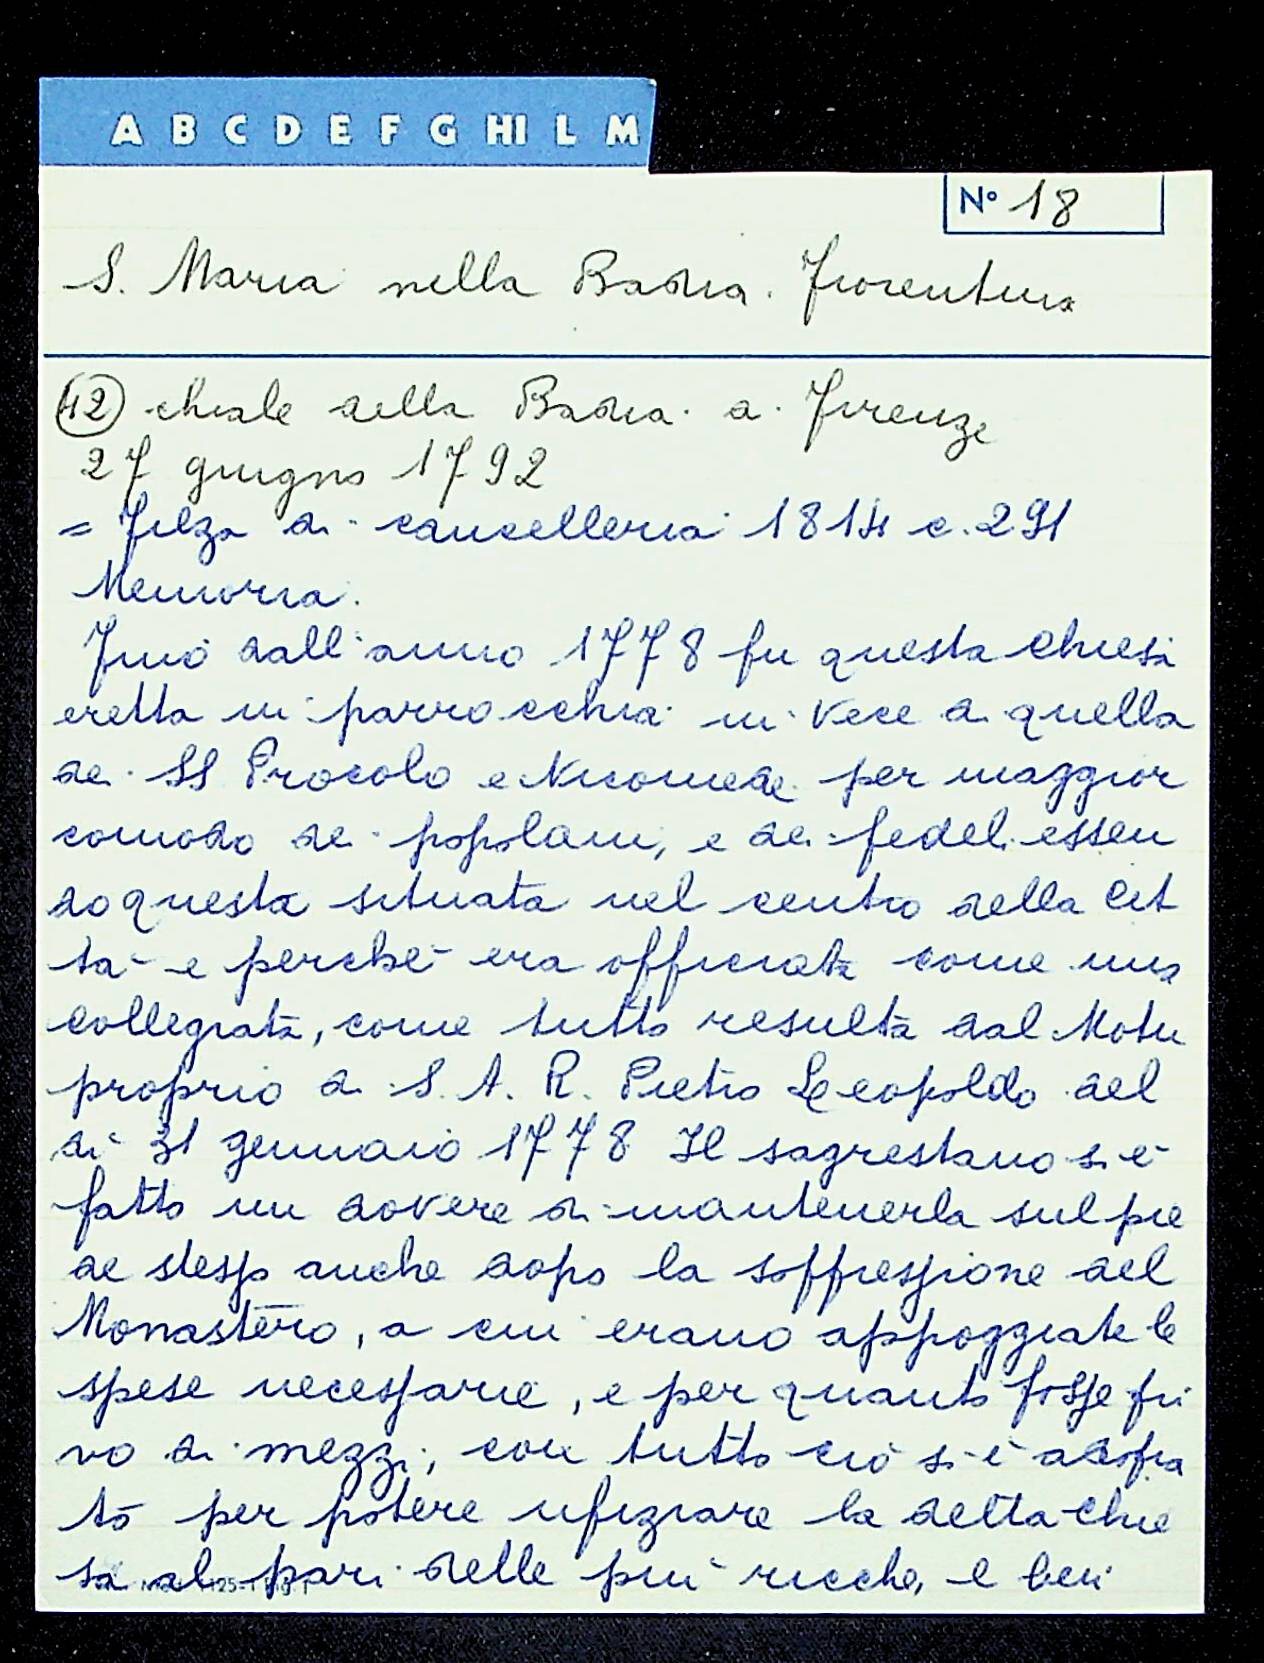 A B C D E F G HI L M
N° 18
S. Maria nella Badia Fiorentina
42 chiale della Badia a Firenze
27 giugno 1792
= Filza di cancelleria 1814 c. 291
Memoria.
Fino dall'anno 1778 fu questa Chiesa
eretta in parrocchia in vece di quella
dei SS Procolo e Nicomede per maggior
comodo dei popolani, e dei fedeli essen
do questa situata nel centro della Cit
tà e perchè era officiata come una
Collegiata, come tutto resulta dal Motu
proprio di S. A. R. Pietro Leopoldo del
dì 31 gennaio 1778 Il sagrestano si è
fatto un dovere di mantenerla sul pie
de stesso anche dopo la soppressione del
Monastero, a cui erano appoggiate le
spese necessarie, e per quanto fosse pri
vo di mezzi, con tutto ciò si è adopra
to per potere ufiziare la detta Chie
sa al pari delle più ricche, e ben